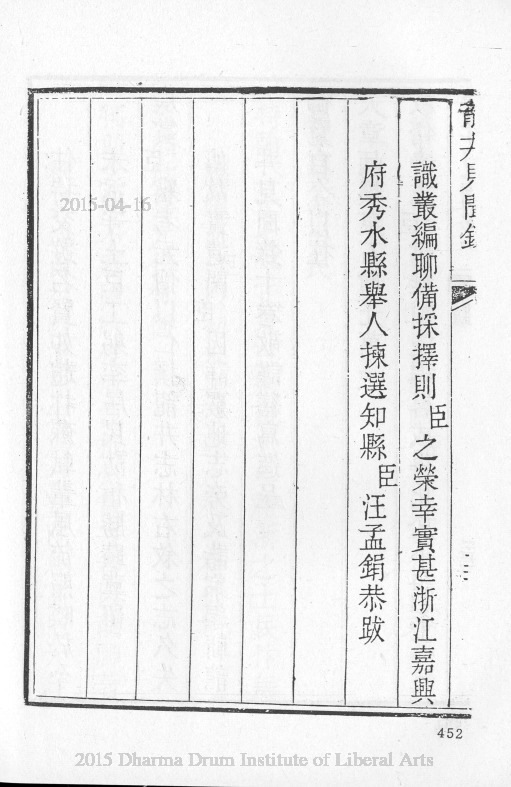 龍井見聞錄
識叢編聊備採擇則臣之榮幸實甚浙江嘉興
府秀水縣舉人揀選知縣臣汪孟鋗恭跋
2015-04-16
452
2015 Dharma Drum Institute of Liberal Arts